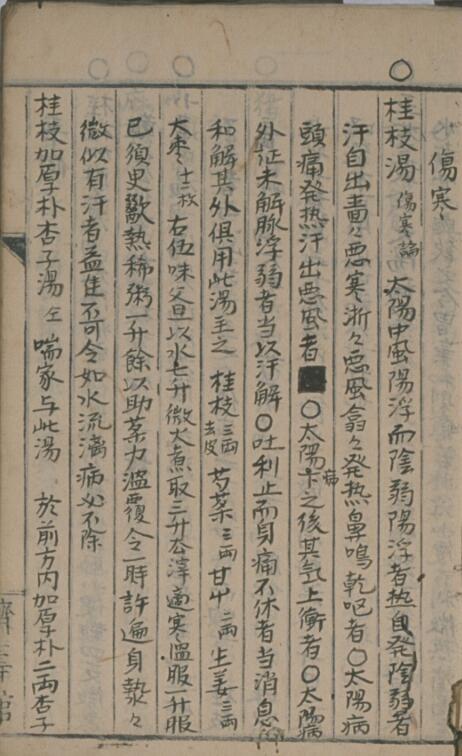 傷寒
桂枝湯 傷寒論 太陽中風陽浮而陰弱陽浮者热自発陰弱者
汗自出嗇々悪寒淅々悪風翕々発热鼻鳴乾呕者〇太陽病
頭痛発热汗出悪風者〇太陽病下之後其気上衝者〇太陽病
外证未解脉浮弱者当以汗解〇吐利止而身痛不休者当消息
和解其外俱用此湯主之 桂枝三両去皮 芍薬三両 甘艸二両 生姜三両
大枣十二枚 右伍味㕮咀以水七升微火煮取三升去滓適寒温服一升服
已須臾歠热稀粥一升餘以助薬力温覆令一時許遍身漐々
微似有汗者益佳不可令如水流漓病必不除
桂枝加厚朴杏子湯 仝 喘家与此湯 於前方内加厚朴二両杏子